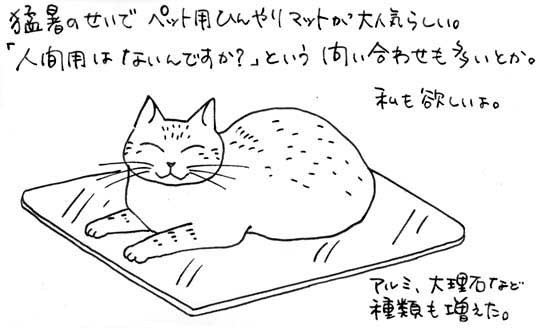 猛暑のせいで ペット用ひんやりマットが大人気らしい。
「人間用はないんですか？」という 問い合わせも多いとか。
私も欲しいよ。
アルミ、大理石など
種類も増えた。